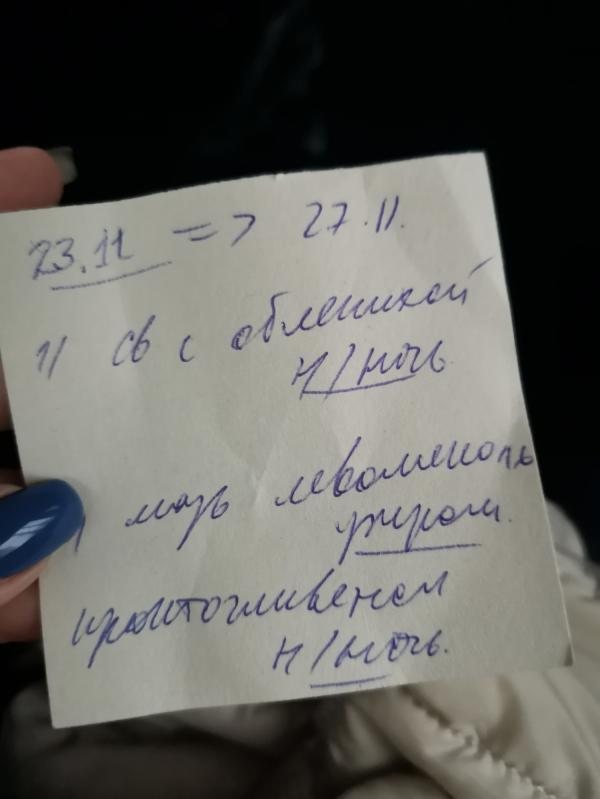 23.11 => 27.11.
1) св с облепихой
н/ночь
мазь левомеколь
утром.
н/ночь.